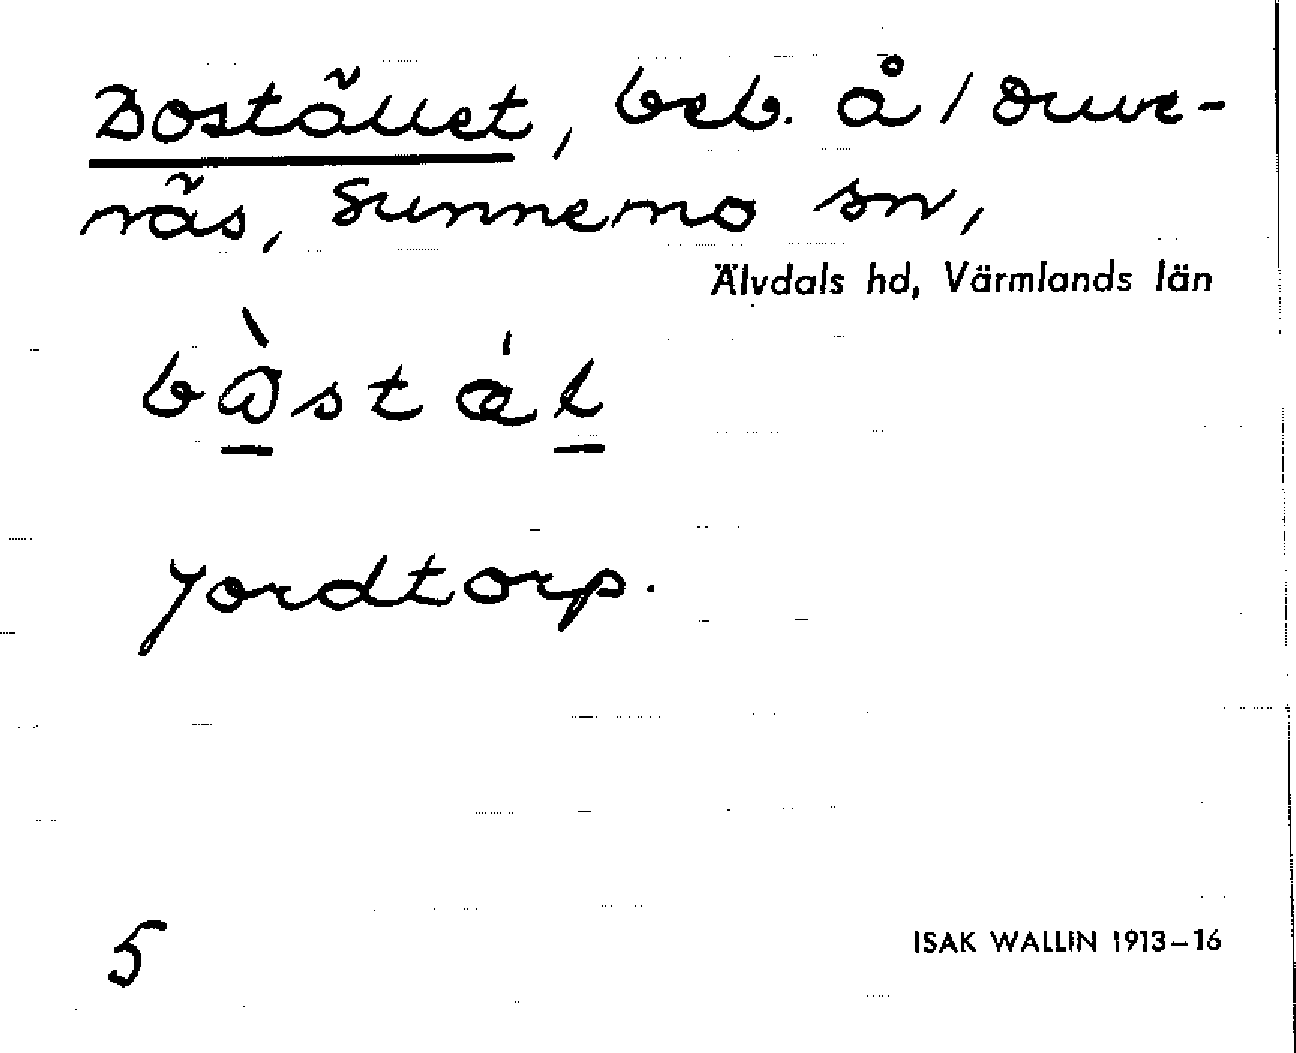 Bostället, beb. å / Duve-
näs, Sunnemo sn,
Älvdals hd, Värmlands län
Jordtorp.
5
ISAK WALLIN 1913–16